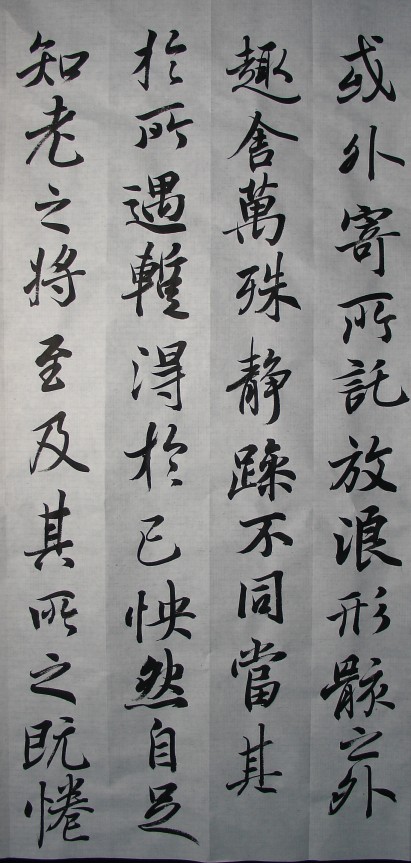 或外寄所託放浪形骸之外
趣舍萬殊静躁不同當其
於所遇得於己怏然自足
知老之将至及其所之既惓